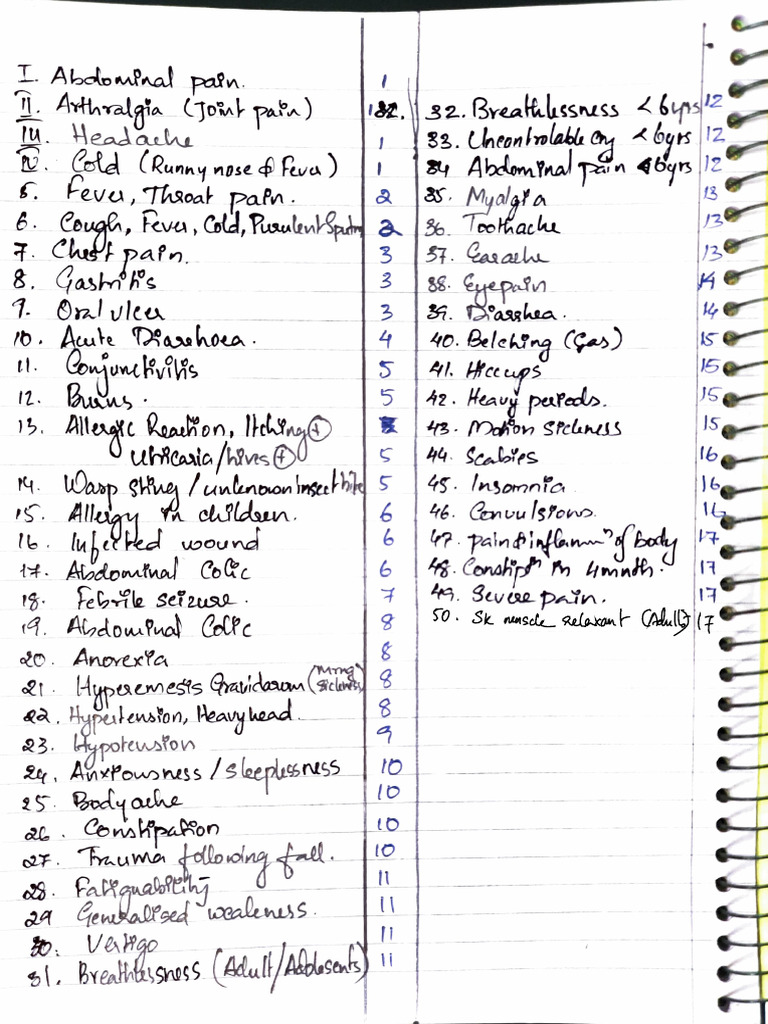 I. Abdominal pain. 1
II. Arthralgia (Joint pain) 1
III. Headache 1
IV. Cold (Runny nose & Fever) 1
5. Fever, Throat pain. 2
6. Cough, Fever, Cold, Purulent Sputm 2
7. Chest pain. 3
8. Gastritis 3
9. Oral ulcer 3
10. Acute Diarrhoea. 4
11. Conjunctivitis 5
12. Burns. 5
13. Allergic Reaction, Itching +
Uticaria/hives + 5
14. Wasp sting / unknown insect bite 5
15. Allergy in children. 6
16. Infected wound 6
17. Abdominal Colic 6
18. Febrile seizure. 7
19. Abdominal Colic 8
20. Anorexia 8
21. Hyperemesis Gravidarum (mrng sickness) 8
22. Hypertension, Heavyhead. 8
23. Hypotension 9
24. Anxiousness / sleeplessness 10
25. Bodyache 10
26. Constipation 10
27. Trauma following fall. 10
28. Fatiguability 11
29 Generalised weakness. 11
30. Vertigo 11
31. Breathlessness (Adult/Adolesents) 11
32. Breathlessness < 6yrs 12
33. Uncontrolable cry < 6yrs 12
34 Abdominal pain < 6yrs 12
35. Myalgia 13
36. Toothache 13
37. Earache 13
38. Eyepain 14
39. Diarrhea. 14
40. Belching (Gas) 15
41. Hiccups 15
42. Heavy periods. 15
43. Motion sickness 15
44. Scabies 16
45. Insomnia 16
46. Convulsions. 16
47. Pain & inflammn of body 17
48. Constipn in 4mnth. 17
49. Severe pain. 17
50. Sk muscle relaxant (Adult) 17